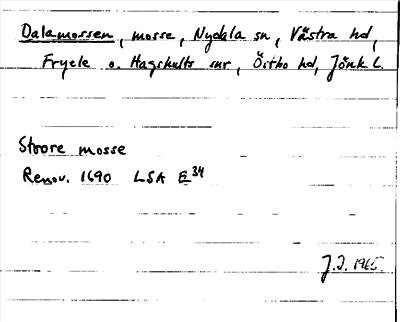 Dalamossen, mosse, Nydala sn, Västra hd,
Fryele o. Hagshults snr, Östbo hd, Jönk L.
Store mosse
Renov. 1690 LSA E 34
J.I. 1965.